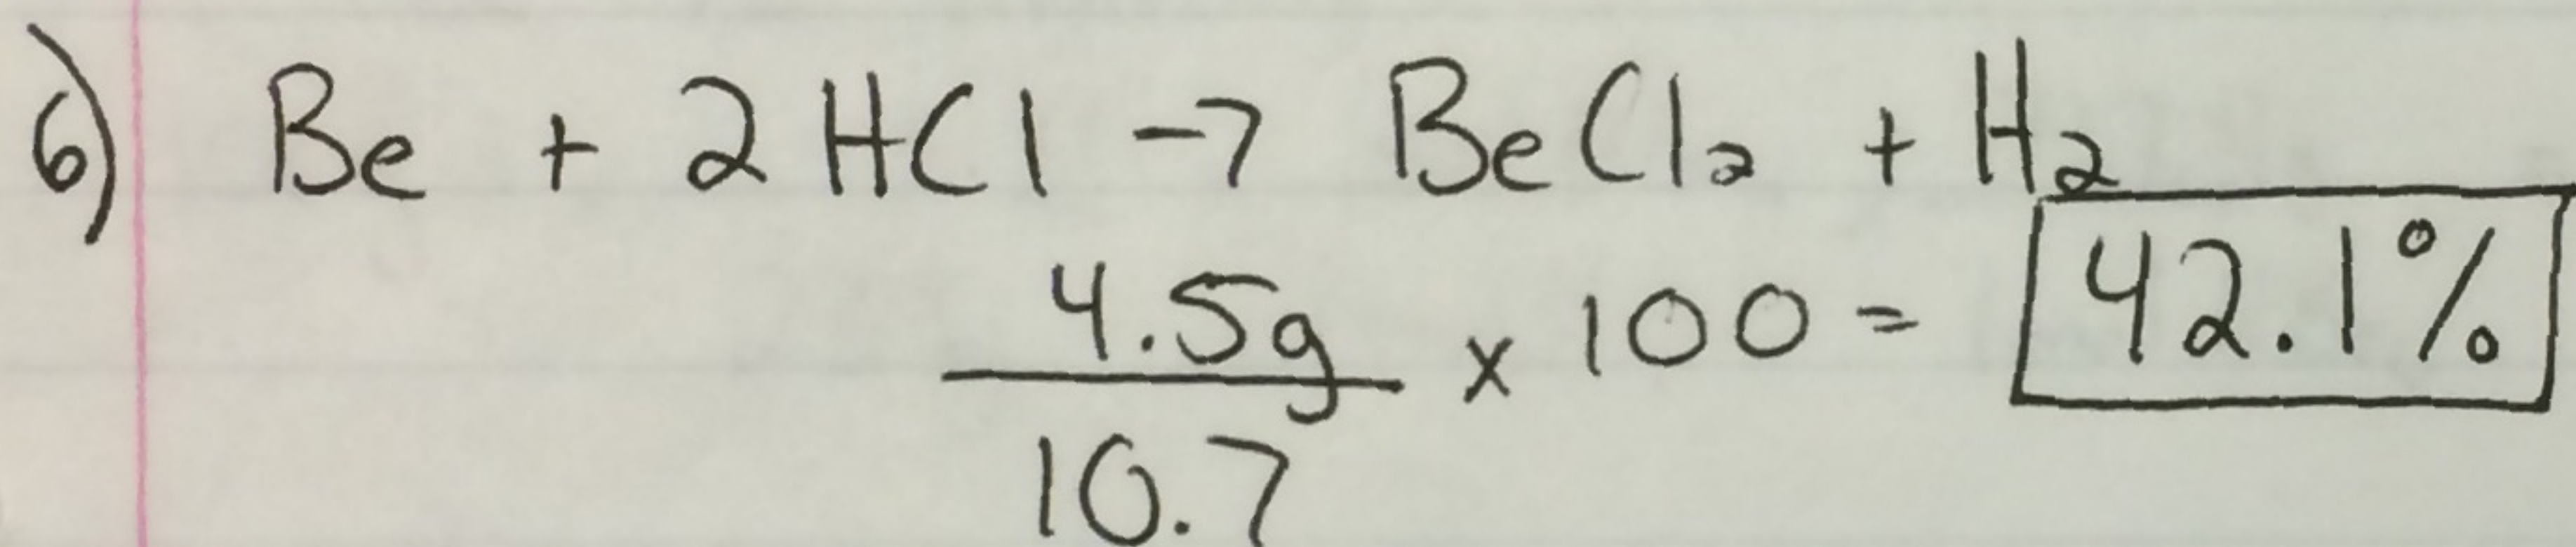 6) Be + 2 HCl → BeCl₂ + H₂
4.5g
10.7
x 100 = 42.1%